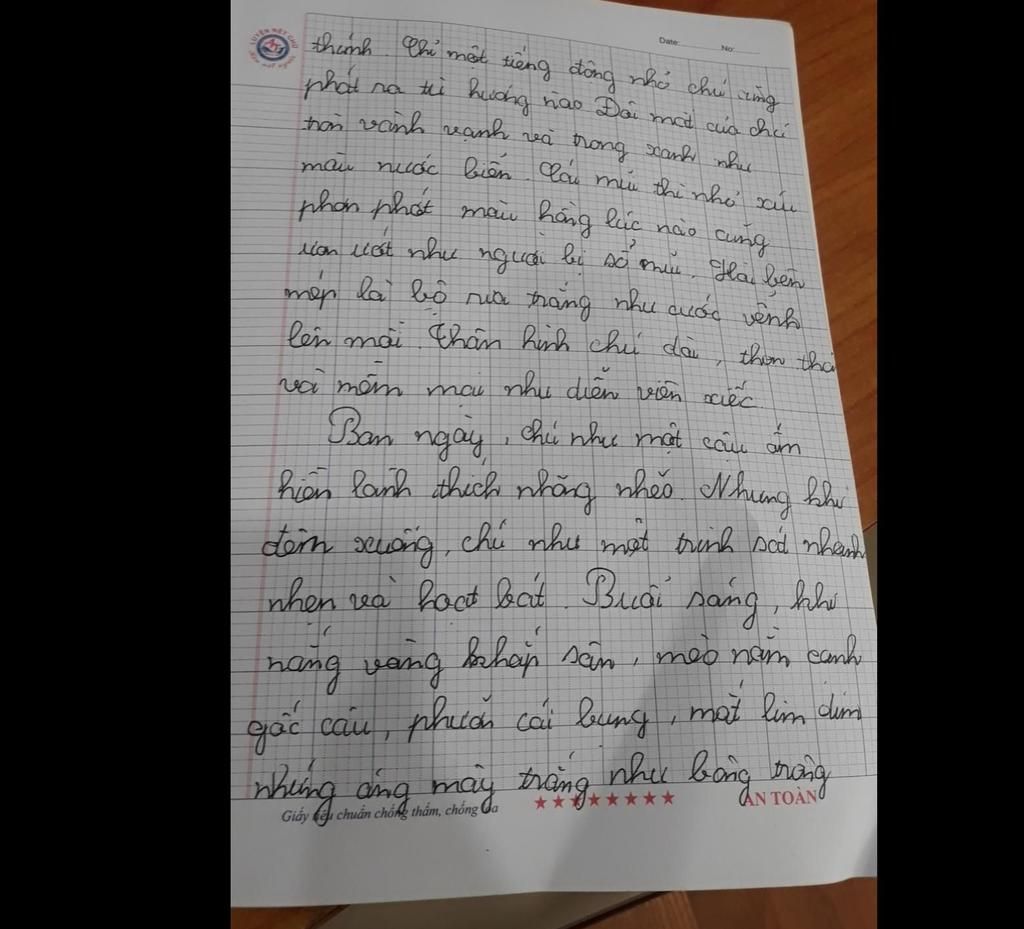 Date: No:
thính. Chỉ một tiếng động nhỏ chú cũng
phát ra từ hướng nào Đôi mắt của chú
tròn vành vạnh và trong xanh như
màu nước biển. Cái mũi thì nhỏ xíu
phơn phớt màu hồng lúc nào cũng
ươn ướt như người bị sổ mũi. Hai bên
mép là bộ ria trắng như cước vểnh
lên mãi. Thân hình chú dài, thon thả
và mềm mại như diễn viên xiếc
Ban ngày, chú như một cậu ấm
hiền lành thích nhõng nhẽo. Nhưng khi
đêm xuống, chú như một trinh sát nhanh
nhẹn và hoạt bát. Buổi sáng, khi
nắng vàng khắp sân, mèo nằm canh
gốc cau, phưỡn cái bụng, mắt lim dim
những áng mây trắng như bông trông
Giấy tiêu chuẩn chống thấm, chống lóa ★★★★★★★★ AN TOÀN